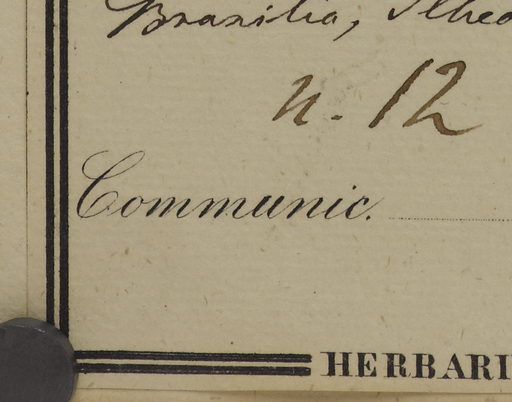 Brasilia, Ilheo
n. 12
Communic.
HERBARI